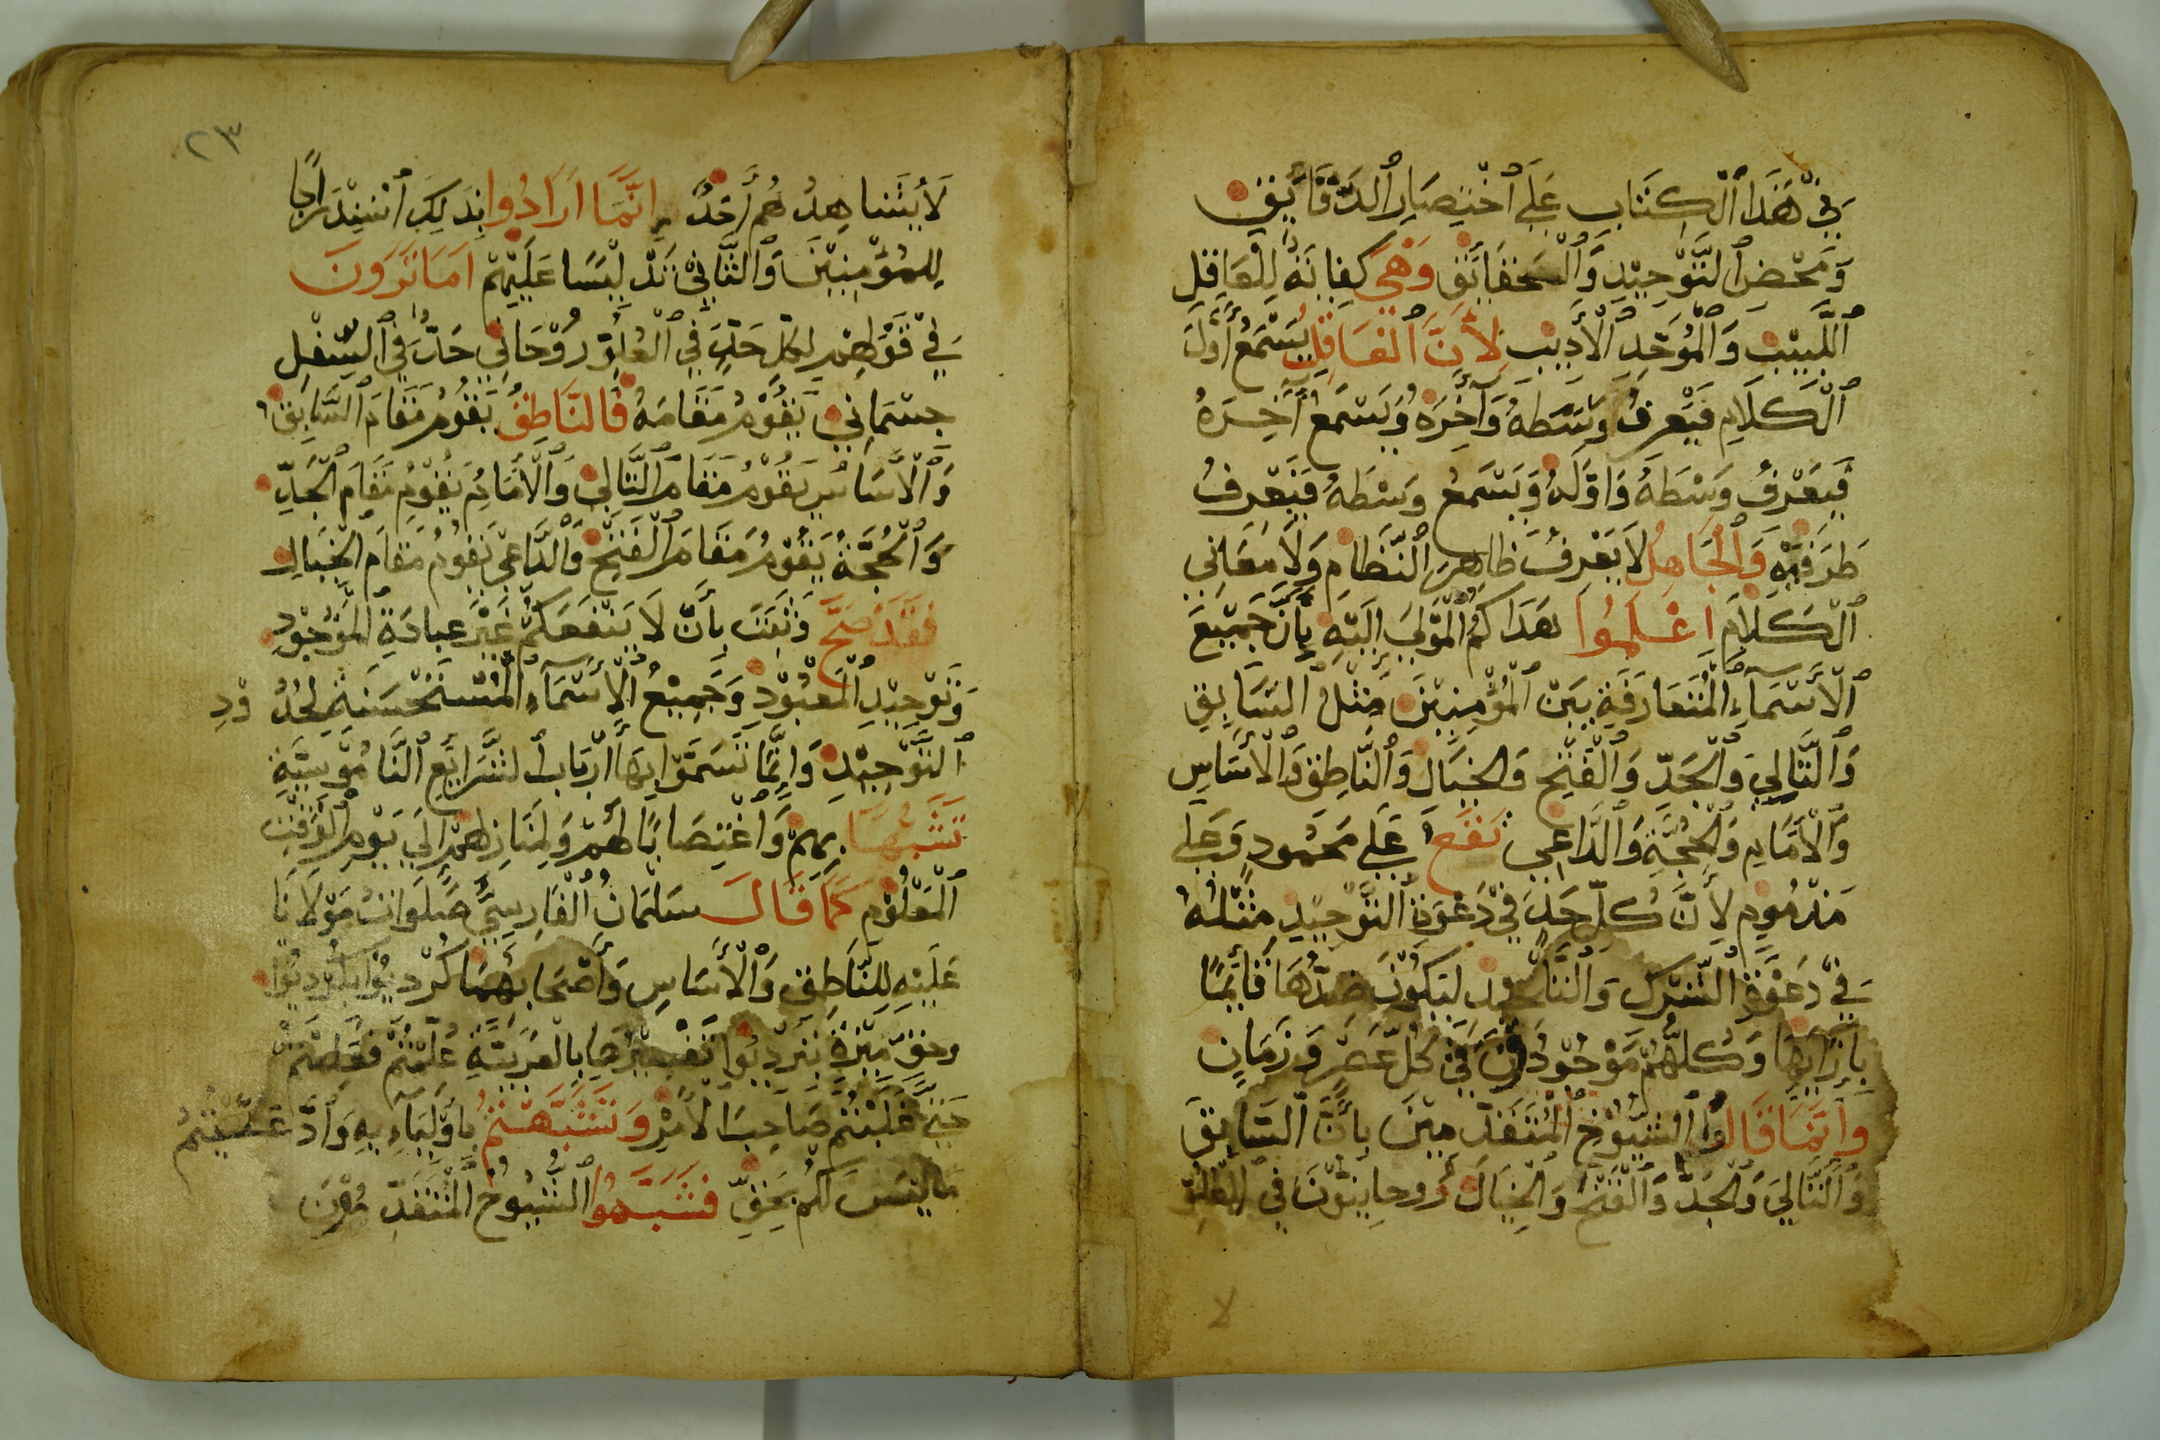 فِيْ هَذَا ٱلْكِتَابِ عَلَى ٱخْتِصَارِ ٱلدَّقَائِقِ
وَمَحْضِ ٱلتَّوْحِيْدِ وَٱلْحَقَائِقِ وَهْيَ كِفَايَةٌ لِلْعَاقِلِ
ٱللَّبِيْبِ وَٱلْمُوَحِّدِ ٱلْأَدِيْبِ لِأَنَّ ٱلْعَاقِلَ يَسْمَعُ أَوَّلَ
ٱلْكَلَامِ فَيَعْرِفُ وَسَطَهُ وَآخِرَهُ وَيَسْمَعُ آخِرَهُ
فَيَعْرِفُ وَسَطَهُ وَاوَّلَهُ وَيَسْمَعُ وَسَطَهُ فَيَعْرِفُ
طَرَفَيْهِ وَٱلْجَاهِلُ لَا يَعْرِفُ ظَاهِرَ ٱلنِّظَامِ وَلَا مَعَانِي
ٱلْكَلَامِ اِعْلَمُوا هَدَاكُمُ ٱلْمَوْلَى الَيْهِ بِأَنَّ جَمِيْعَ
ٱلْأَسْمَآءِ ٱلْمُتَعَارَفَةِ بَيْنَ ٱلْمُؤْمِنِيْنَ مِثْلُ ٱلسَّابِقِ
وَٱلتَّالِي وَٱلْجَدِّ وَٱلْفَتْحِ وَٱلخَيَالِ وَٱلنَّاطِقِ وَٱلْأَسَاسِ
وَٱلْأَمَامِ وَٱلْحُجَّةِ وَٱلدَّاعِي تَقَعُ عَلَى مَحْمُودٍ وَعَلَى
مَذْمُومٍ لِأَنَّ كُلَّ حَدٍّ فِيْ دَعْوَةِ ٱلتَّوْحِيْدِ مِثْلُهُ
فِيْ دَعْوَةِ ٱلشِّرْكِ وَٱلتَّلْحِيدِ لِيَكُوْنَ ضِدُّهَا قَائِمًا
بِإِزَآئِهَا وَكُلُّهُمْ مَوْجُوْدُوْنَ فِيْ كُلِّ عَصْرٍ وَزَمَانٍ
وَاِنَّمَا قَالُوا ٱلشُّيُوْخُ ٱلْمُتَقَدِّمِيْنَ بِأَنَّ ٱلسَّابِقَ
وَٱلتَّالِيَ وَٱلْجَدَّ وَٱلْفَتْحَ وَٱلْخَيَالَ رُوحَانِيُّوْنَ فِي ٱلْعُلُوِّ
٢٣
لَا يُشَاهِدُهُمْ أَحَدٌ اِنَّمَا اَرَادُوا بِذَلِكَ ٱسْتِدْرَاجًا
لِلمُؤْمِنِيْنَ وَٱلثَّانِيْ تَدْلِيْسًا عَلَيْهِمْ امَا تَرَوْنَ
فِيْ قَوْلِهِمْ لِكُلِّ حَدٍّ فِي ٱلْعُلُوِّ رُوْحَانِي حَدٌّ فِي ٱلسِّفْلِ
جِسْمَانِي يَقُوْمُ مَقَامَهُ فَالنَّاطِقُ يَقُوْمُ مَقَامَ ٱلسَّابِقِ
وَٱلْأَسَاسُ يَقُوْمُ مَقَامَ ٱلتَّالِي وَٱلْأَمَامُ يَقُوْمُ مَقَامَ ٱلْجَدِّ
وَٱلْحُجَّةُ يَقُوْمُ مَقَامَ ٱلْفَتْحِ وَٱلدَّاعِي يَقُوْمُ مَقَامَ ٱلْخَيَالِ
فَقَدْ صَحَّ وَثَبَتَ بِأَنَّ لَا يَنْفَعَكُمْ غَيْرَ عِبَادَةِ ٱلْمَوْجُوْدِ
وَتَوْحِيْدِ ٱلْمَعْبُوْدِ وَجَمِيْعُ ٱلْأَسْمَآءِ ٱلْمُسْتَحْسَنَةِ لِحُدُ وْدِ
ٱلتَّوْحِيْدِ وَاِنَّمَا تَسَمَّوْا بِهَا أَرْبَابُ ٱلشَّرَايِعِ ٱلنَّامُوْسِيَّةِ
تَشَبُّهًا بِهِمْ وَٱغْتِصَابًا لَهُمْ وَلِمَنَازِلِهِمْ إِلَى يَوْمِ ٱلْوَقْتِ
ٱلْمَعْلُوْمِ كَمَا قَالَ سَلْمَانُ ٱلْفَارِسِيُّ صَلَوَاتُ مَوْلَانَا
عَلَيْهِ لِلنَّاطِقِ وَٱلْأَسَاسِ وَأَصْحَابِهِمَا كَرْدِيْوَا نَكَرْدِيْوَا
وحَقّ مِيْرَه بِبَرْدِيُوا تَفْسِيْرُهَا بِالْعَرَبِيَّةِ عُلِّمْتُمْ فَعَلِمْتُمْ
حَتَّى غَلَبْتُمْ صَاحِبَ ٱلْأَمْرِ وَتَشَبَّهْتُمْ بِأَوْلِيَآءِهِ وَٱدَّعَيْتُمْ
مَا لَيْسَ لَكُمْ بِحَقٍّ فَشَبَّهُوا ٱلشُّيُوْخُ ٱلْمُتَقَدِّمُوْنَ